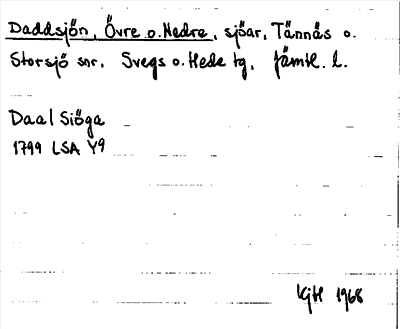 Daddsjön, Övre o. Nedre, sjöar, Tännäs o.
Storsjö snr. Svegs o. Hede tg, Jämtl. l.
Daal Siöga
1799 LSA Y9
KJH 1968